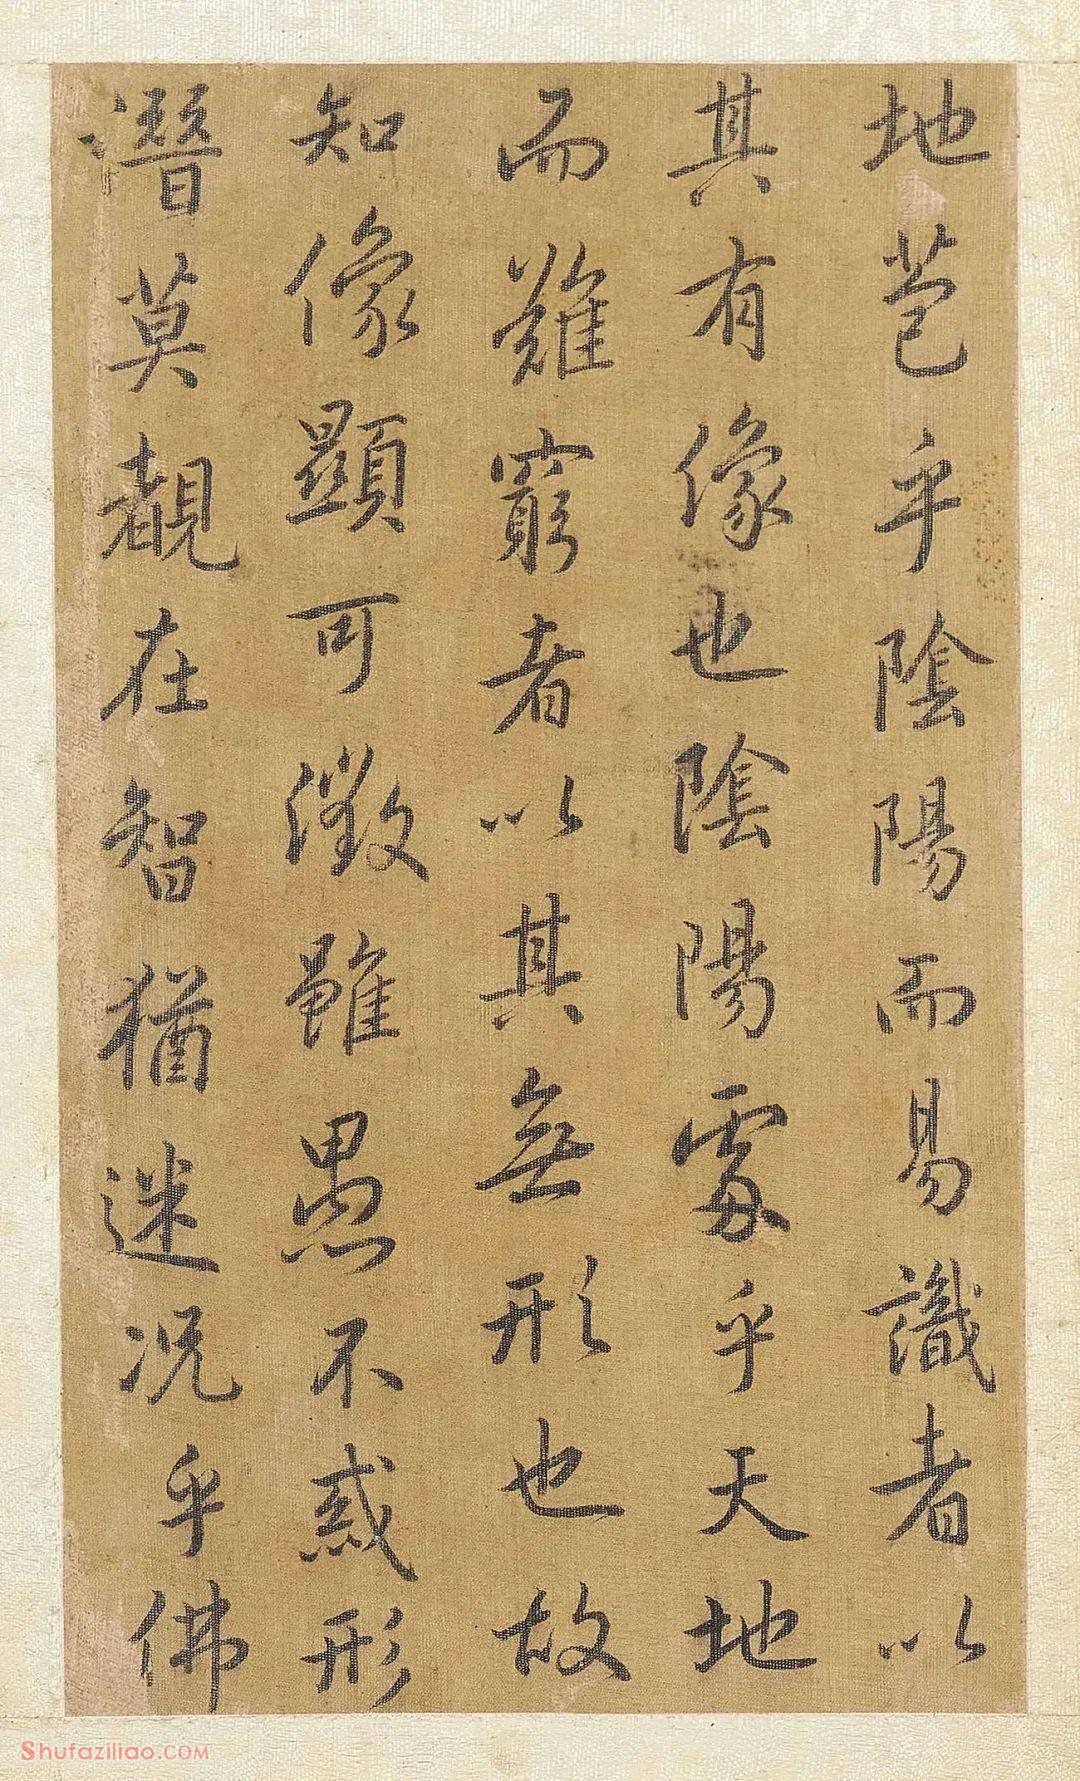 地苞乎陰陽而易識者以
其有像也陰陽處乎天地
而難窮者以其無形也故
知像顯可徵雖愚不惑形
潛莫覩在智猶迷况乎佛
Shufaziliao.COM